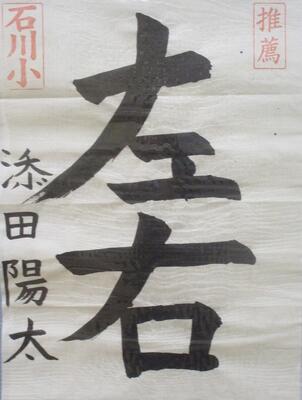 推薦
左右
石川小
添田陽太